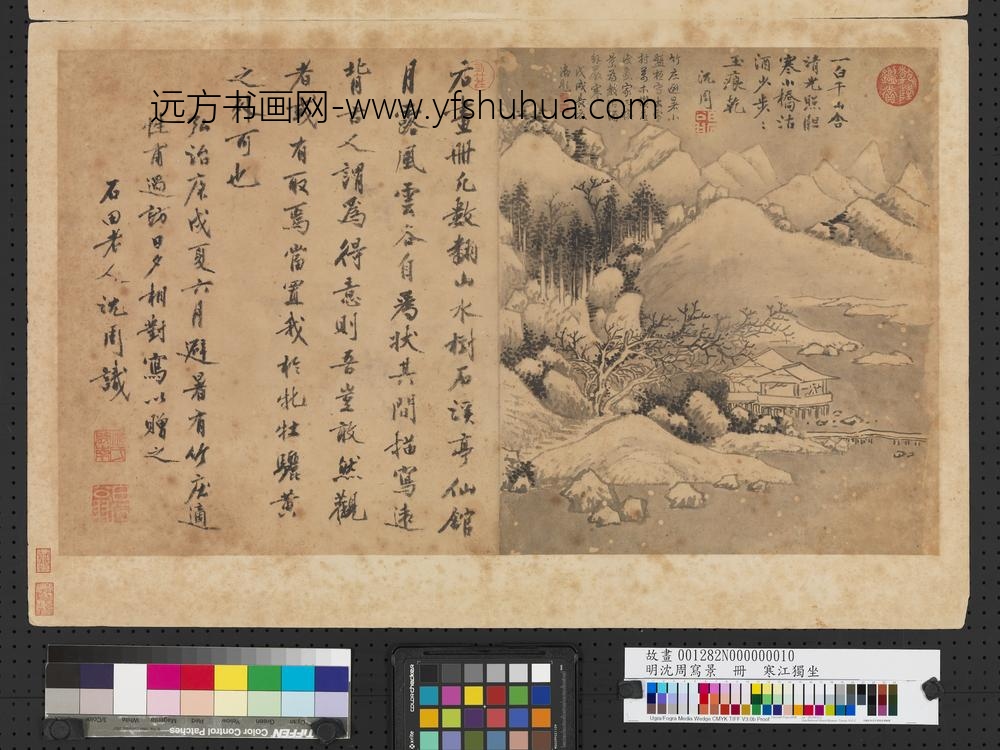 一白千山含
清光照胆
寒小橋沽
酒少步〻
玉痕乾
沈周
右畫冊凡數翻山水樹石溪亭仙館
月露風雲各自為狀其間描寫遠
背古人謂為得意則吾豈敢然觀
者或有取焉當置我於牝牡驪黃
之外可也
弘治庚戌夏六月避暑有竹庄適
惟甫過訪日夕相對寫以贈之
石田老人沈周識
远方书画网-www.yfshuhua.com
故畫 001282N000000010
明沈周寫景 冊 寒江獨坐
Ugra/Fogra Media Wedge CMYK TIFF V3.0b Proof
colorchecker
x-rite
TIFFEN Color Control Patches
3/Color
White
Magenta
Red
Yellow
Green
Cyan
Blue